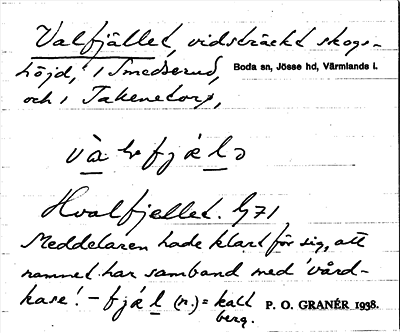 Valfjället, vidsträckt skogs-
höjd, i Smedserud,
Boda sn, Jösse hd, Värmlands l.
och i Takenetorp,
Hvalfjellet. G71,
Meddelaren hade klart för sig, att
namnet har samband med 'vård-
kase'. – fjäl (n.) = kalt
berg.
P. O. GRANÉR 1938.